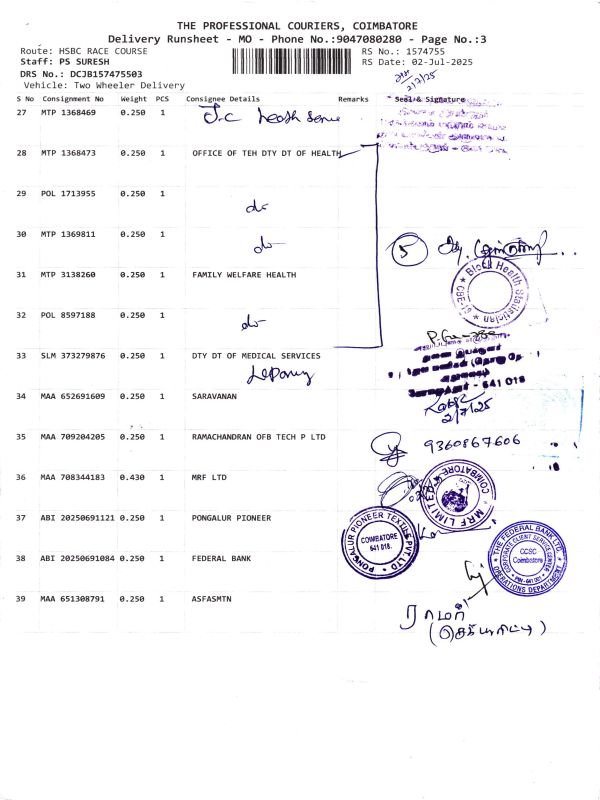 THE PROFESSIONAL COURIERS, COIMBATORE
Delivery Runsheet - MO - Phone No.:9047080280 - Page No.:3
Route: HSBC RACE COURSE
RS No.: 1574755
Staff: PS SURESH
RS Date: 02-Jul-2025
DRS No.: DCJB157475503
Vehicle: Two Wheeler Delivery
2/7/25
S No Consignment No Weight PCS Consignee Details Remarks Seal & Signature
27 MTP 1368469 0.250 1
28 MTP 1368473 0.250 1 OFFICE OF TEH DTY DT OF HEALTH
29 POL 1713955 0.250 1 do
30 MTP 1369811 0.250 1 do
5
31 MTP 3138260 0.250 1 FAMILY WELFARE HEALTH
Block Health Statistician
32 POL 8597188 0.250 1 do
33 SLM 373279876 0.250 1 DTY DT OF MEDICAL SERVICES
641 018
34 MAA 652691609 0.250 1 SARAVANAN
2/7/25
35 MAA 709204205 0.250 1 RAMACHANDRAN OFB TECH P LTD
9360867606
36 MAA 708344183 0.430 1 MRF LTD
MRF LIMITED COIMBATORE
37 ABI 20250691121 0.250 1 PONGALUR PIONEER
PONGALUR PIONEER TEXTILE PVT LTD
COIMBATORE
641 018.
38 ABI 20250691084 0.250 1 FEDERAL BANK
THE FEDERAL BANK LTD.
CORPORATE CLIENT SERVICE CENTER
CCSC
Coimbatore
OPERATIONS DEPARTMENT
39 MAA 651308791 0.250 1 ASFASMTN
ராமர்